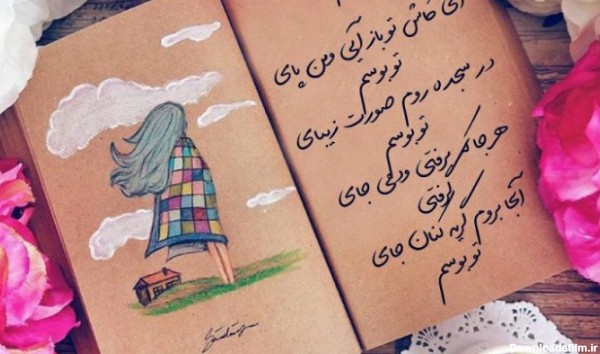 ای کاش تو باز آیی و من پای
تو بوسم
در سجده روم صورت زیبای
تو بوسم
هر جا که برفتی و دمی جای
گرفتی
آنجا بروم گریه کنان جای
تو بوسم
Downloadefilm.ir